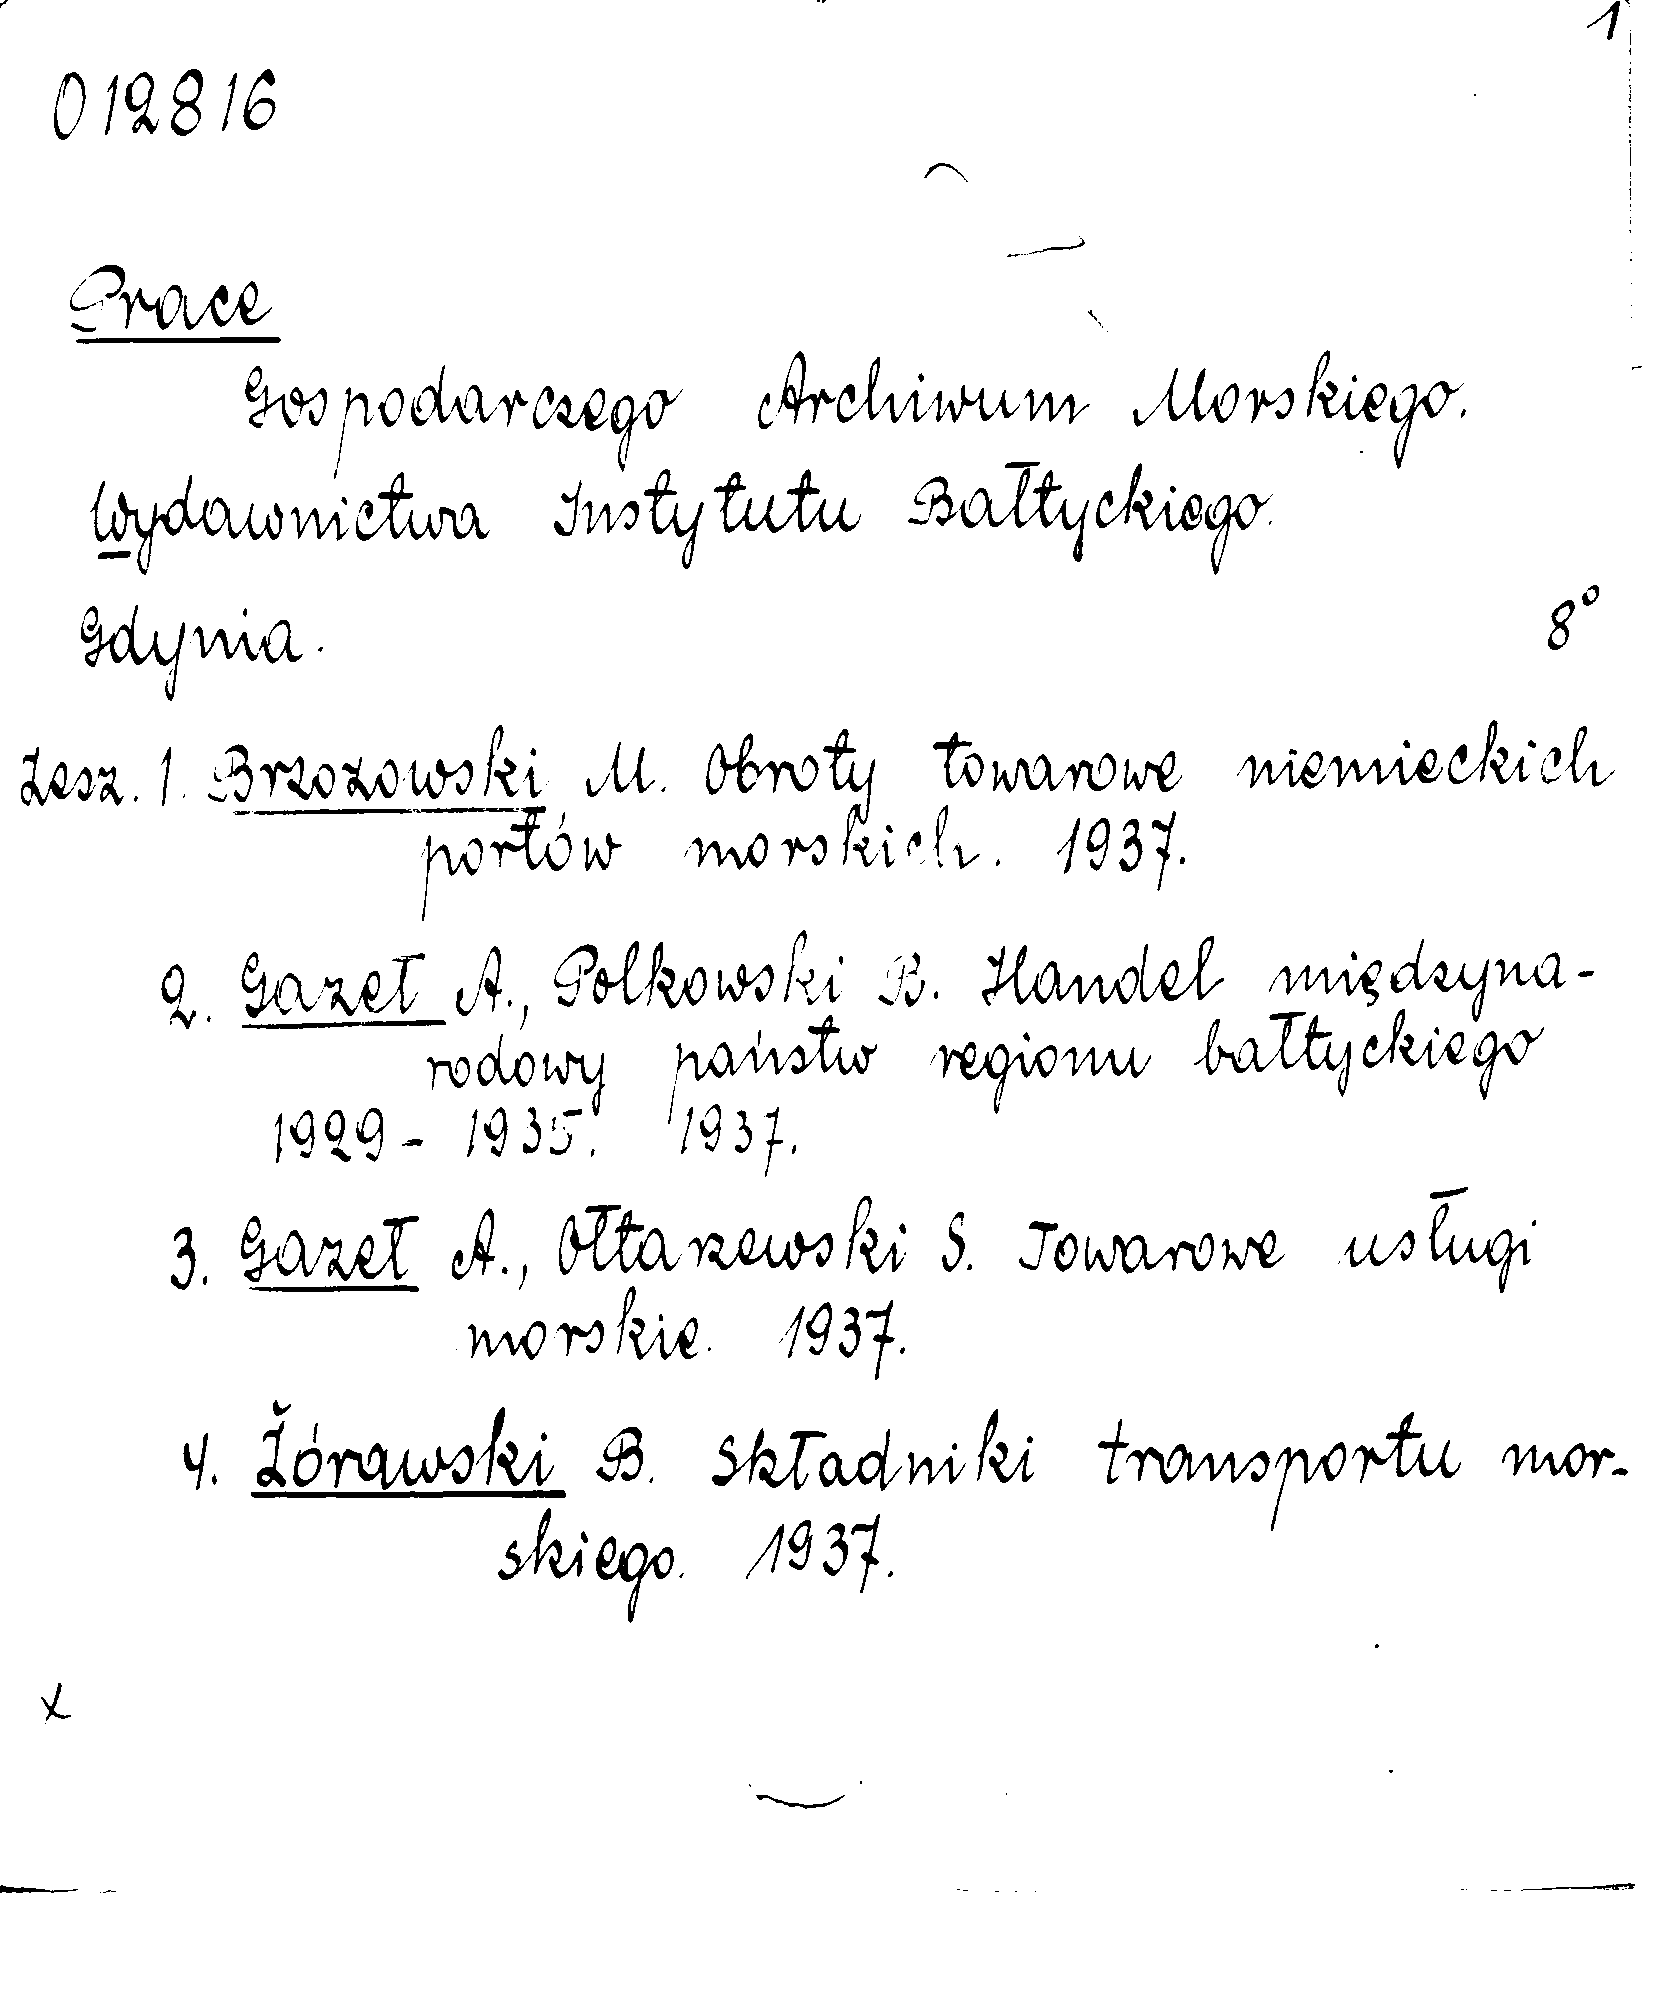 1
012816
Prace
Gospodarczego Archiwum Morskiego.
Wydawnictwa Instytutu Bałtyckiego.
Gdynia. 8°
Zesz. 1. Brzozowski M. Obroty towarowe niemieckich
portów morskich. 1937.
2. Gazeł A., Polkowski B. Handel międzyna-
rodowy państw regionu bałtyckiego
1929 - 1935. 1937.
3. Gazeł A., Ołtarzewski S. Towarowe usługi
morskie. 1937.
4. Żórawski B. Składniki transportu mor-
skiego. 1937.
x